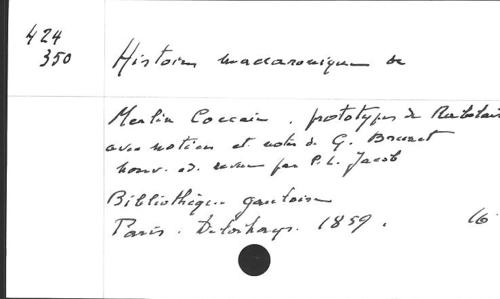 424
350
Histoire maccaronique de
Merlin Coccaie, prototype de Rabelais
avec notices et notes de G. Brunet
nouv. ed. revue par P.L. Jacob
Bibliothèque gauloise
Paris. Delahays. 1859.
16